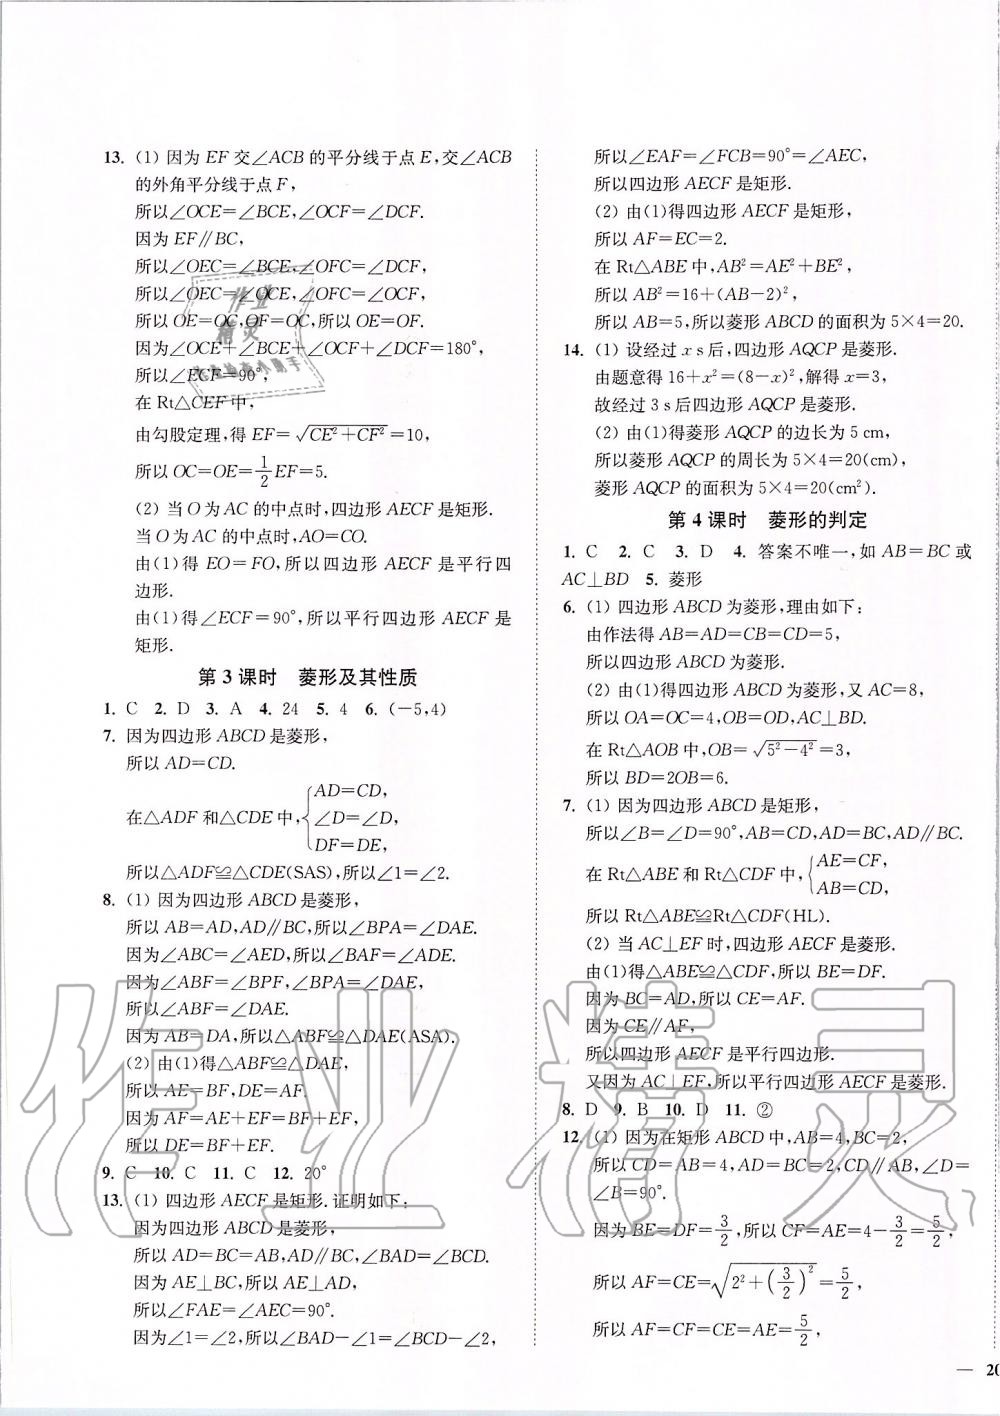 13. (1) 因为 EF 交∠ACB 的平分线于点 E,交∠ACB
的外角平分线于点 F,
所以∠OCE=∠BCE,∠OCF=∠DCF.
因为 EF∥BC,
所以∠OEC=∠BCE,∠OFC=∠DCF,
所以∠OEC=∠OCE,∠OFC=∠OCF,
所以 OE=OC,OF=OC,所以 OE=OF.
因为∠OCE+∠BCE+∠OCF+∠DCF=180°,
所以∠ECF=90°,
在 Rt△CEF 中,
由勾股定理,得 EF=√(CE²+CF²)=10,
所以 OC=OE=1/2 EF=5.
(2) 当 O 为 AC 的中点时,四边形 AECF 是矩形.
当 O 为 AC 的中点时,AO=CO.
由(1)得 EO=FO,所以四边形 AECF 是平行四
边形.
由(1)得∠ECF=90°,所以平行四边形 AECF 是
矩形.
第 3 课时 菱形及其性质
1. C 2. D 3. A 4. 24 5. 4 6. (-5,4)
7. 因为四边形 ABCD 是菱形,
所以 AD=CD.
在△ADF 和△CDE 中,{AD=CD,
∠D=∠D,
DF=DE,
所以△ADF≌△CDE(SAS),所以∠1=∠2.
8. (1) 因为四边形 ABCD 是菱形,
所以 AB=AD,AD∥BC,所以∠BPA=∠DAE.
因为∠ABC=∠AED,所以∠BAF=∠ADE.
因为∠ABF=∠BPF,∠BPA=∠DAE,
所以∠ABF=∠DAE.
因为 AB=DA,所以△ABF≌△DAE(ASA).
(2) 由(1)得△ABF≌△DAE,
所以 AE=BF,DE=AF.
因为 AF=AE+EF=BF+EF,
所以 DE=BF+EF.
9. C 10. C 11. C 12. 20°
13. (1) 四边形 AECF 是矩形. 证明如下:
因为四边形 ABCD 是菱形,
所以 AD=BC=AB,AD∥BC,∠BAD=∠BCD.
因为 AE⊥BC,所以 AE⊥AD,
所以∠FAE=∠AEC=90°.
因为∠1=∠2,所以∠BAD-∠1=∠BCD-∠2,
所以∠EAF=∠FCB=90°=∠AEC,
所以四边形 AECF 是矩形.
(2) 由(1)得四边形 AECF 是矩形,
所以 AF=EC=2.
在 Rt△ABE 中,AB²=AE²+BE²,
所以 AB²=16+(AB-2)²,
所以 AB=5,所以菱形 ABCD 的面积为 5×4=20.
14. (1) 设经过 x s 后,四边形 AQCP 是菱形.
由题意得 16+x²=(8-x)²,解得 x=3,
故经过 3 s 后四边形 AQCP 是菱形.
(2) 由(1)得菱形 AQCP 的边长为 5 cm,
所以菱形 AQCP 的周长为 5×4=20(cm),
菱形 AQCP 的面积为 5×4=20(cm²).
第 4 课时 菱形的判定
1. C 2. C 3. D 4. 答案不唯一,如 AB=BC 或
AC⊥BD 5. 菱形
6. (1) 四边形 ABCD 为菱形,理由如下:
由作法得 AB=AD=CB=CD=5,
所以四边形 ABCD 为菱形.
(2) 由(1)得四边形 ABCD 为菱形,又 AC=8,
所以 OA=OC=4,OB=OD,AC⊥BD.
在 Rt△AOB 中,OB=√(5²-4²)=3,
所以 BD=2OB=6.
7. (1) 因为四边形 ABCD 是矩形,
所以∠B=∠D=90°,AB=CD,AD=BC,AD∥BC.
在 Rt△ABE 和 Rt△CDF 中,{AE=CF,
AB=CD,
所以 Rt△ABE≌Rt△CDF(HL).
(2) 当 AC⊥EF 时,四边形 AECF 是菱形.
由(1)得△ABE≌△CDF,所以 BE=DF.
因为 BC=AD,所以 CE=AF.
因为 CE∥AF,
所以四边形 AECF 是平行四边形.
又因为 AC⊥EF,所以平行四边形 AECF 是菱形.
8. D 9. B 10. D 11. ②
12. (1) 因为在矩形 ABCD 中,AB=4,BC=2,
所以 CD=AB=4,AD=BC=2,CD∥AB,∠D=
∠B=90°.
因为 BE=DF=3/2,所以 CF=AE=4-3/2=5/2,
所以 AF=CE=√(2²+(3/2)²)=5/2,
所以 AF=CF=CE=AE=5/2,
— 20
作业精灵
作业
精灵